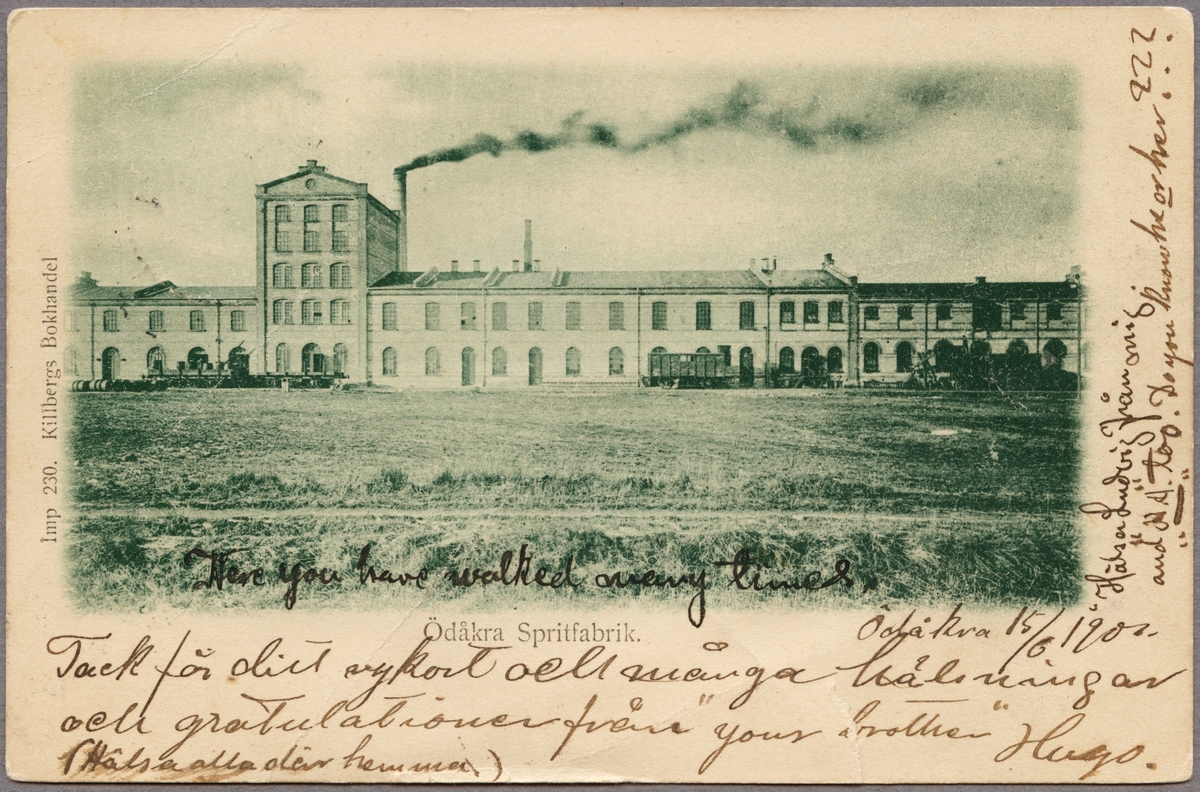 Imp 230. Killbergs Bokhandel
Here you have walked many times.
Ödåkra Spritfabrik.
Ödåkra 15/6 1901.
Tack för ditt vykort och många hälsningar
och gratulationer från "your brother"
Hugo.
(Hälsa alla där hemma.)
"Hälsa Ludvig från mig
and "A.A." too. Do you know he or her ???